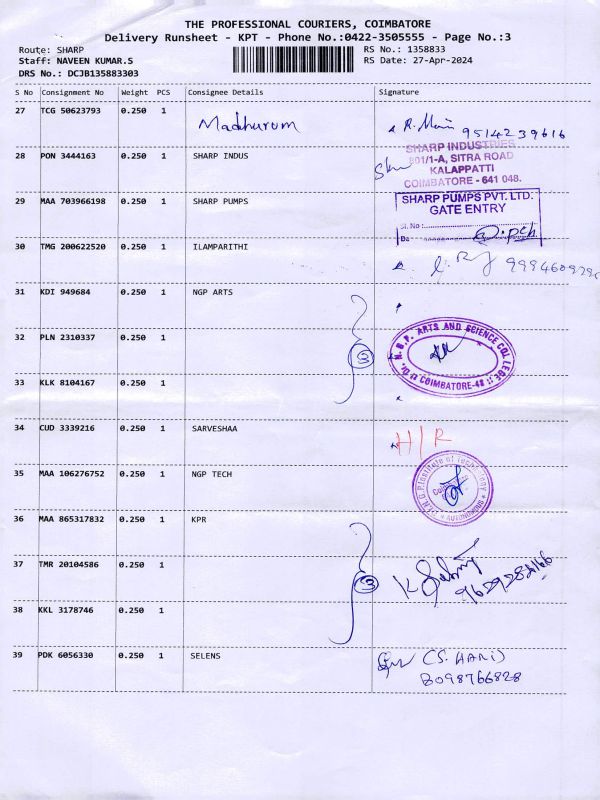 THE PROFESSIONAL COURIERS, COIMBATORE
Delivery Runsheet - KPT - Phone No.:0422-3505555 - Page No.:3
Route: SHARP RS No.: 1358833
Staff: NAVEEN KUMAR.S RS Date: 27-Apr-2024
DRS No.: DCJB135883303
S No Consignment No Weight PCS Consignee Details Signature
27 TCG 50623793 0.250 1 Madhurum 9514239616
28 PON 3444163 0.250 1 SHARP INDUS
SHARP INDUSTRIES
801/1-A, SITRA ROAD
KALAPPATTI
COIMBATORE - 641 048.
29 MAA 703966198 0.250 1 SHARP PUMPS
SHARP PUMPS PVT. LTD.
GATE ENTRY
Sl. No :
30 TMG 200622520 0.250 1 ILAMPARITHI
31 KDI 949684 0.250 1 NGP ARTS
32 PLN 2310337 0.250 1
Dr. N.G.P. ARTS AND SCIENCE COLLEGE
COIMBATORE-48
33 KLK 8104167 0.250 1
34 CUD 3339216 0.250 1 SARVESHAA H/R
35 MAA 106276752 1 0.250 1 NGP TECH
Dr. N.G.P. Institute of Technology
AUTONOMOUS
36 MAA 865317832 0.250 1 KPR
37 TMR 20104586 0.250 1 3
38 KKL 3178746 0.250 1
39 PDK 6056330 0.250 1 SELENS (S. HARI)
8098766828